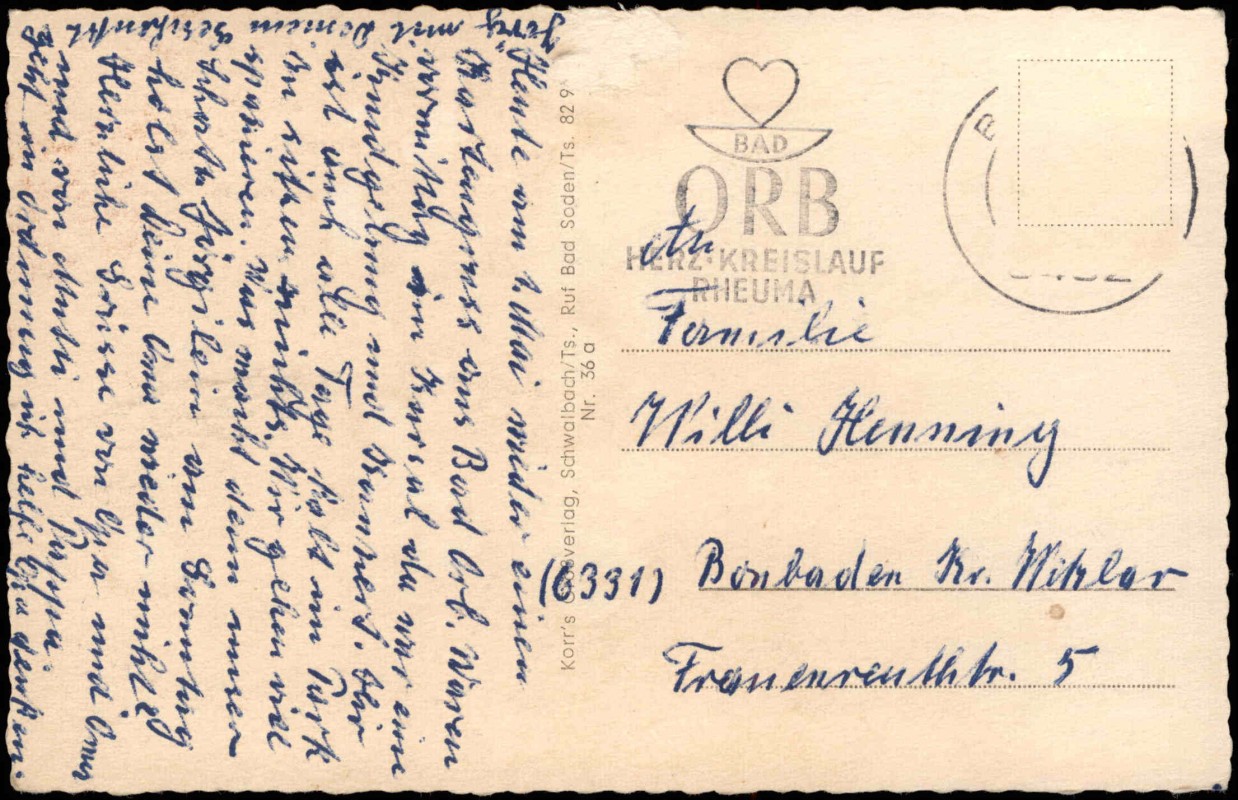 Heute am 1. Mai wieder einen
Kartengruss aus Bad Orb. Waren
vormittag im Kursal da war eine
Kundgebung und Konzert. Hir
ist auch alle Tage im Park
sitzen nichts. Wir gehen viel
spazieren. Was macht denn unser
Schatz Jürgilein am Sonntag
holst deine Oma wieder nicht
Herzliche Grüsse von Opa und Oma
und von Mutti und Pappa.
geht in Ordnung ich helfe Opa denken.
Jürg mit Deinem Geschenk
Korr's verlag, Schwalbach/Ts., Ruf Bad Soden/Ts. 82 9
Nr. 36 a
BAD
ORB
HERZ·KREISLAUF
RHEUMA
An
Familie
Willi Henning
(6331) Bonbaden Kr. Wetzlar
Frauenreuthstr. 5